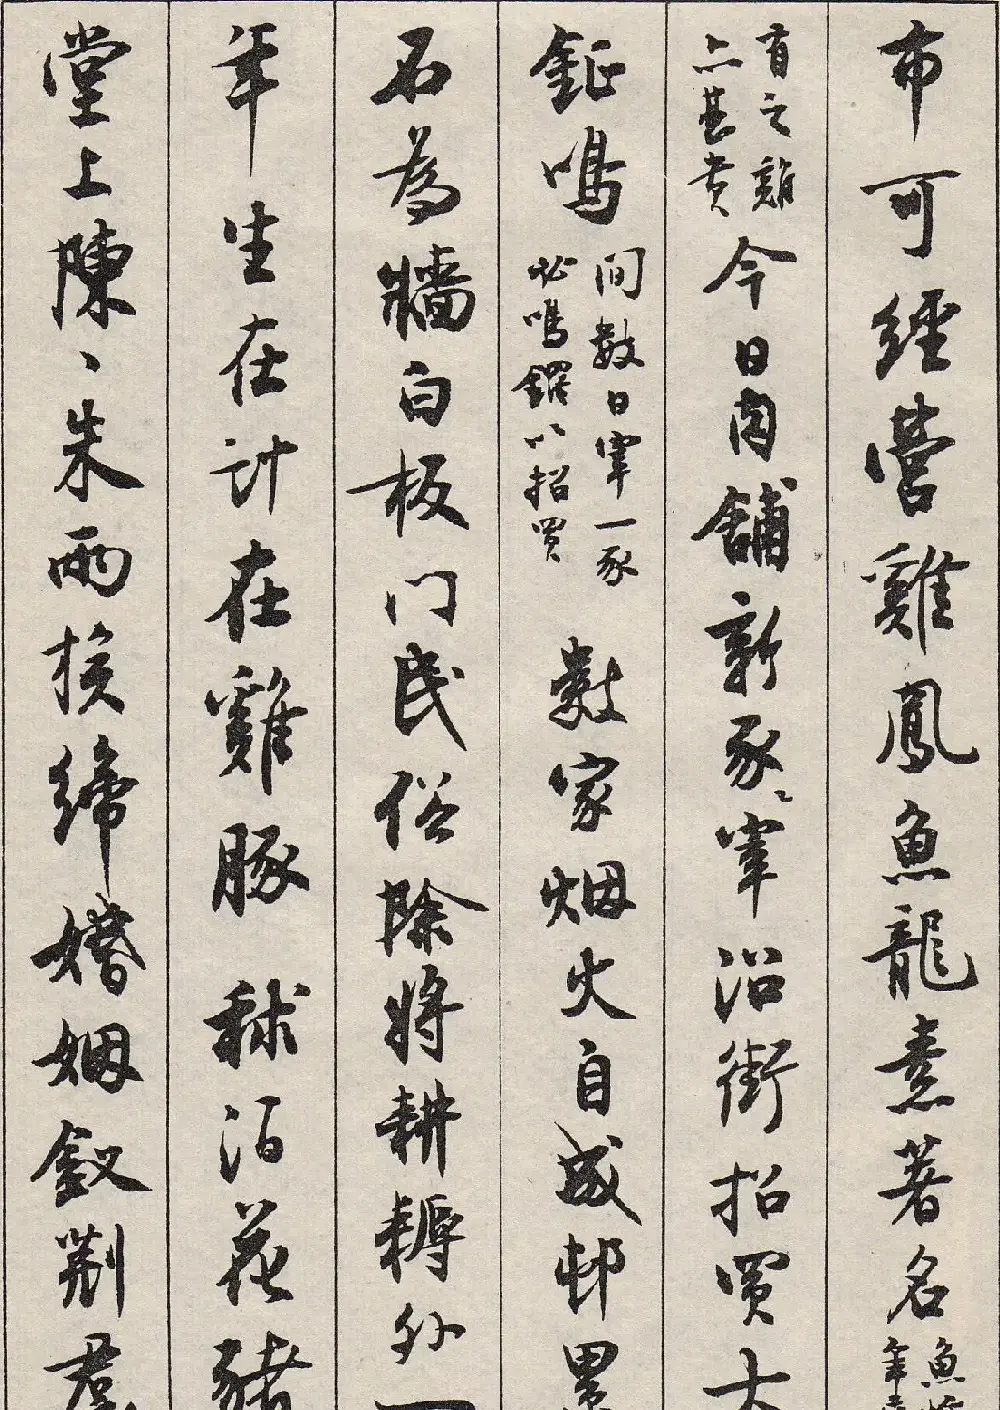 布可經營雞鳳魚龍素著名
魚
年
育之雞
亦甚貴
今日肉鋪新豕〻宰沿街招買大
鉦鳴
間數日宰一豕
必鳴鑼以招買
數家烟火自成邨累
石為牆白板门民俗除將耕耨外一
年生在計在雞豚秫酒花豬
堂上陳〻朱雨挨締婚姻釵荆羣